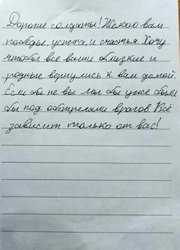 Дорогие солдаты! Желаю вам
победы, успеха, и счастья. Хочу
чтобы все ваши близкие и
родные вернулись к вам домой.
Если бы не вы мы бы уже были
бы под обстрелами врагов. Всё
зависит только от вас!